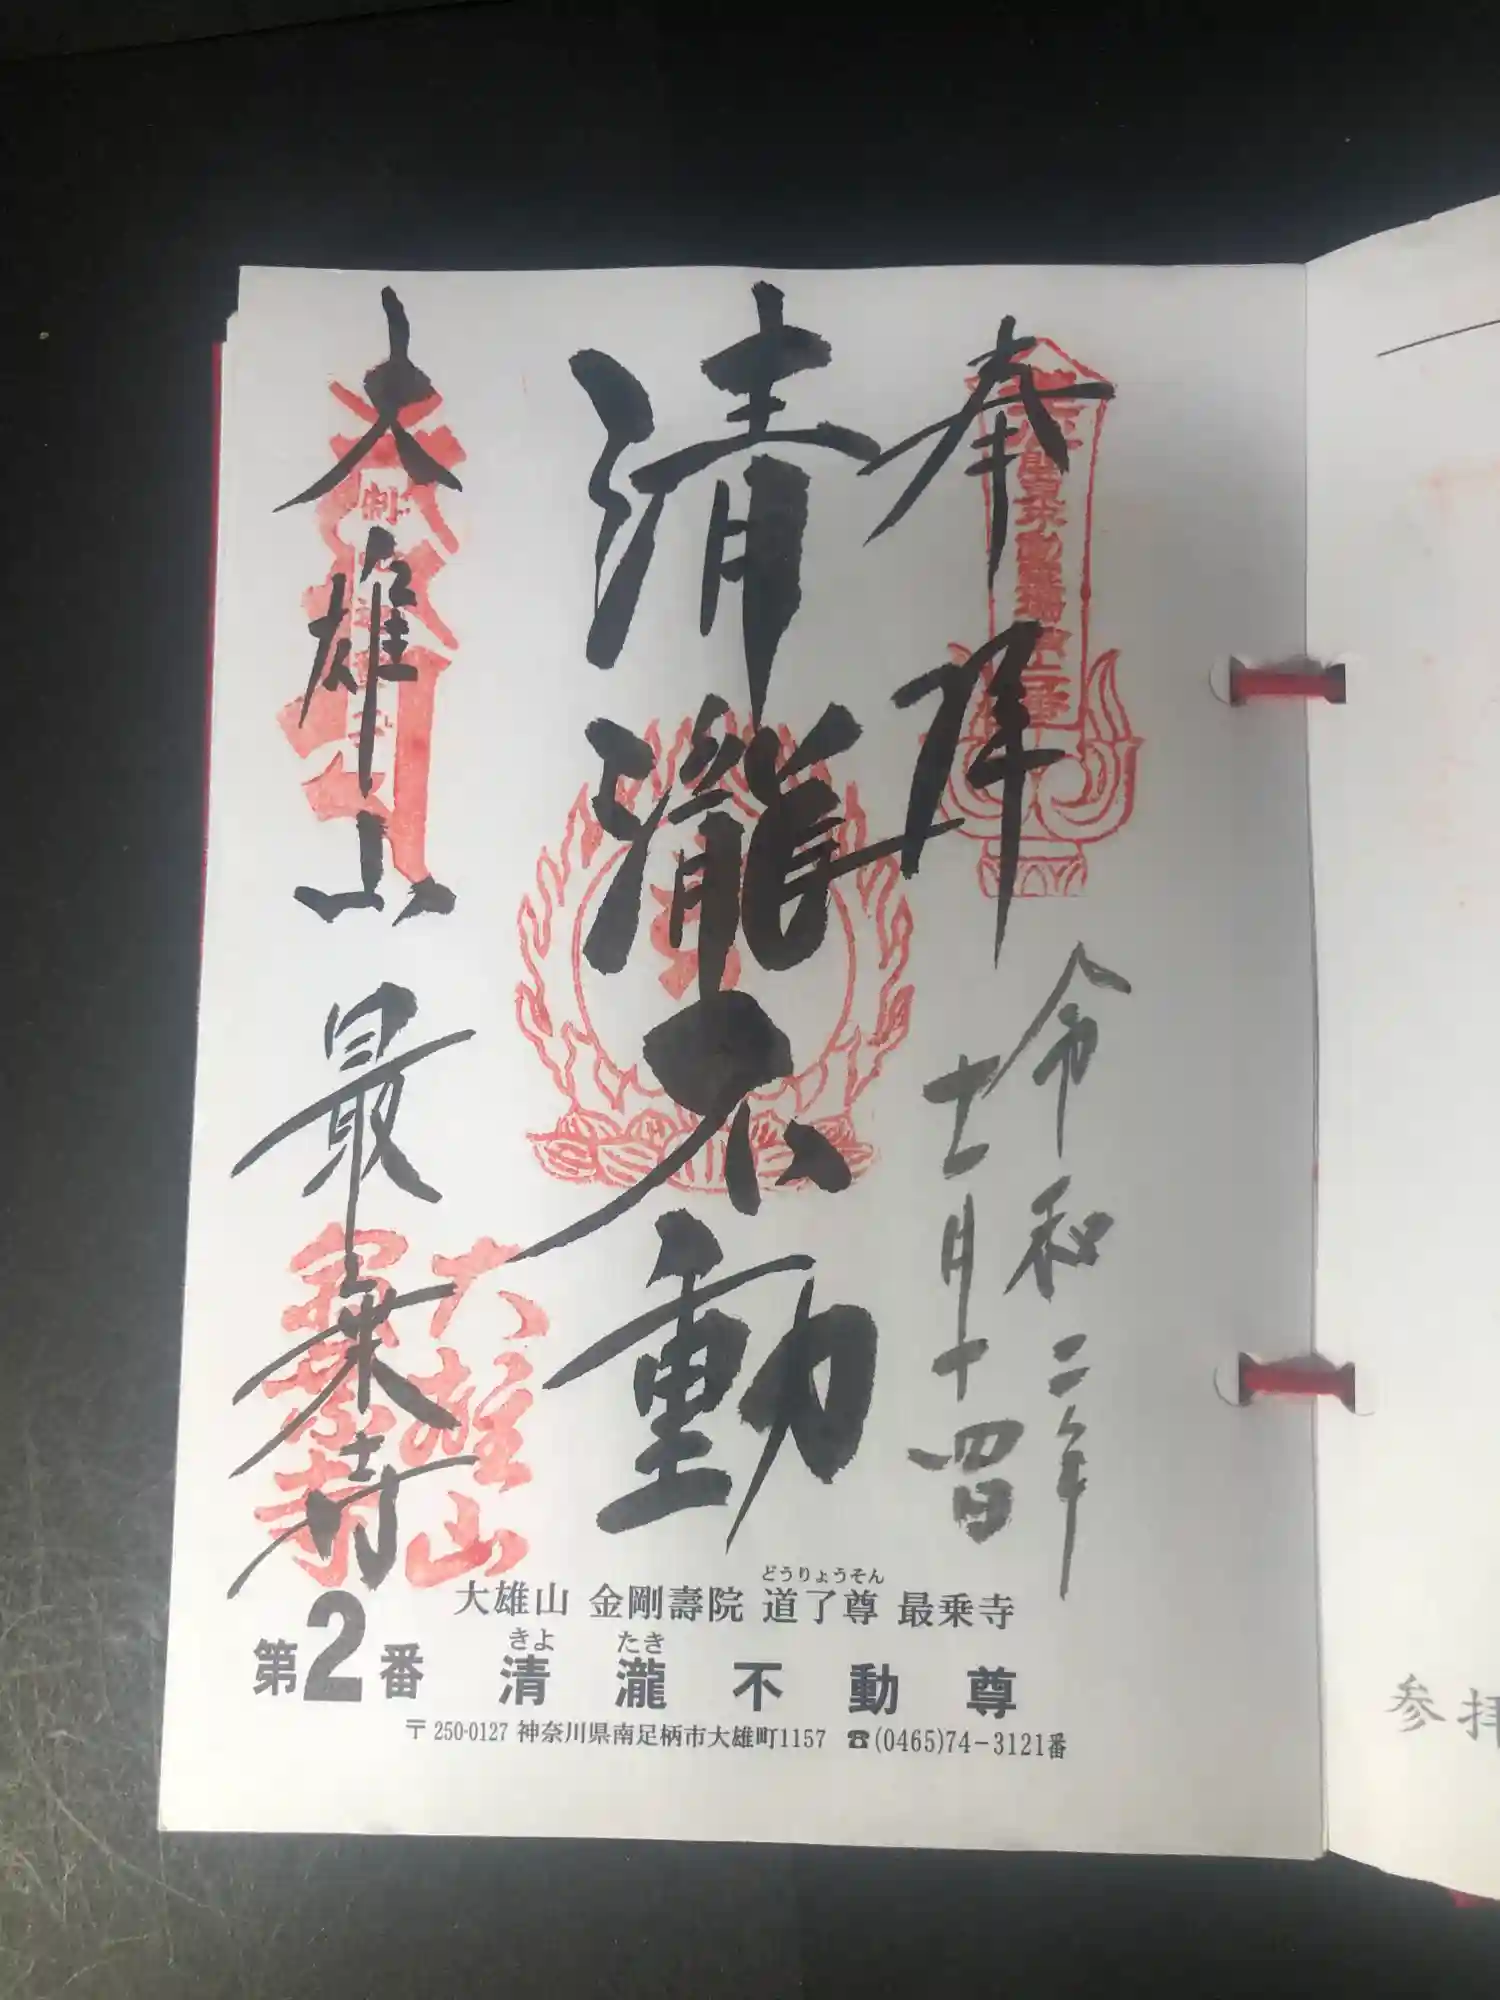 奉拝
令和二年
十一月十四日
清瀧不動
大雄山最乗寺
大雄山
最乗寺
どうりょうそん
大雄山 金剛壽院 道了尊 最乗寺
きよ たき
第2番 清瀧不動尊
〒250-0127 神奈川県南足柄市大雄町1157 ☎(0465)74-3121番
参拝